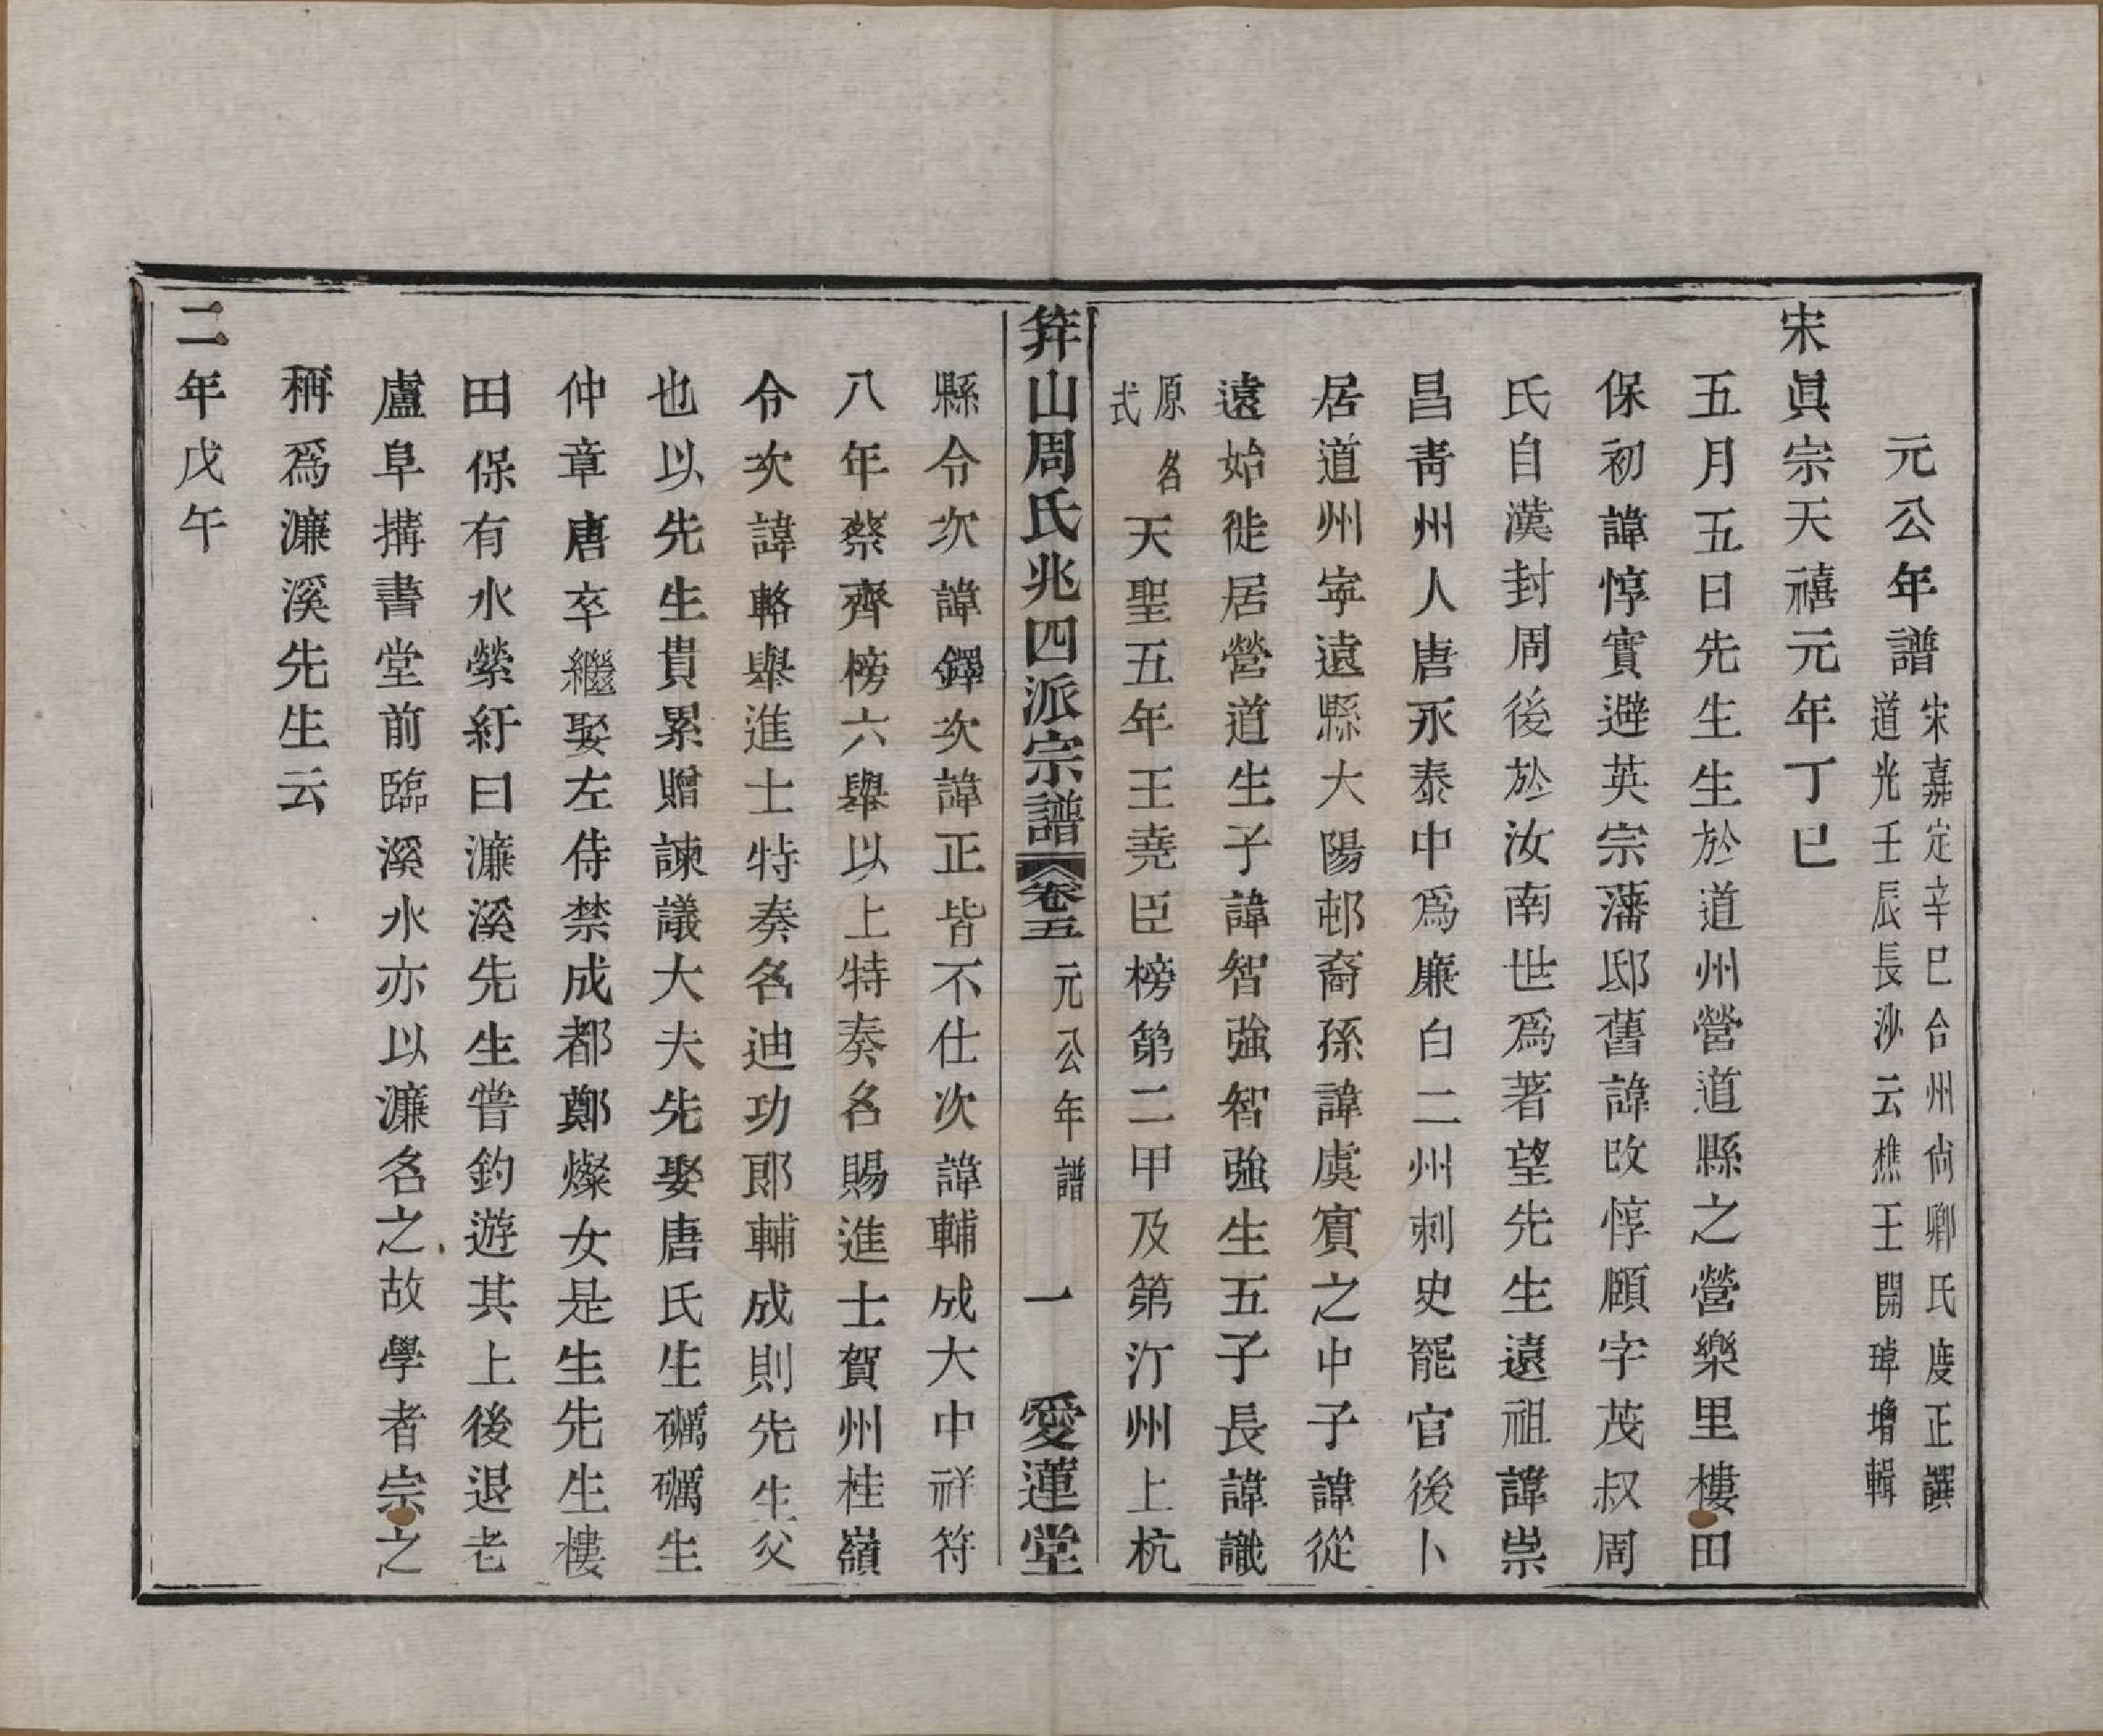 元公年譜 宋嘉定辛巳台州尙卿氏度正譔
道光壬辰長沙云樵王開琸增輯
宋眞宗天禧元年丁巳
五月五日先生生於道州營道縣之營樂里樓田
保初諱惇實避英宗藩邸舊諱改惇頤字茂叔周
氏自漢封周後於汝南世爲著望先生遠祖諱崇
昌青州人唐永泰中爲廉白二州刺史罷官後卜
居道州寧遠縣大陽邨裔孫諱虞賓之中子諱從
遠始徙居營道生子諱智強智強生五子長諱識
原名
式
天聖五年王堯臣榜第二甲及第汀州上杭
弁山周氏兆四派宗譜 卷五 元公年譜 一 愛蓮堂
縣令次諱鐸次諱正皆不仕次諱輔成大中祥符
八年蔡齊榜六舉以上特奏名賜進士賀州桂嶺
令次諱輅舉進士特奏名迪功郎輔成則先生父
也以先生貴累贈諫議大夫先娶唐氏生礪礪生
仲章唐卒繼娶左侍禁成都鄭燦女是生先生樓
田保有水縈紆曰濂溪先生嘗釣遊其上後退老
盧阜搆書堂前臨溪水亦以濂名之故學者宗之
稱爲濂溪先生云
二年戊午